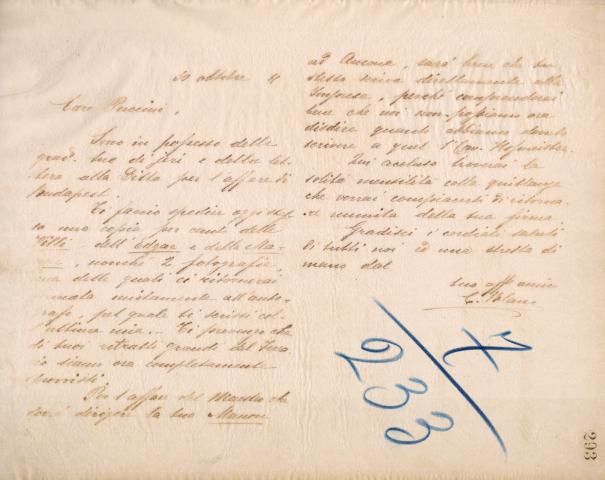 30 ottobre 4
Caro Puccini,
Sono in possesso della
grad. tua di jeri e della let-
tera alla Ditta per l'affare di
Budapest.
Ti faccio spedire oggi stes-
so una copia per canto delle
Villi, dell'Edgar e della Ma-
non, nonchè 2 fotografie,
una delle quali ci ritornerai
firmata unitamente all'auto-
grafo, pel quale ti scrissi col-
l'ultima mia. Ti premetto che
di tuoi ritratti grandi del
siamo ora completamente
sprovvisti.
Per l'affare del Maestro che
dovrà dirigere la tua Manon
ad Ancona, sarà bene che tu
stesso scriva direttamente alla
Impresa, perchè comprenderai
bene che noi non possiamo ora
disdire quanto abbiamo dovuto
scrivere a quel Cav.
Qui accluso troverai la
solita mensilità colla quittanza
che vorrai compiacerti di ritornar-
ci munita della tua firma.
Gradisci i cordiali saluti
di tutti noi ed una stretta di
mano dal
tuo aff amico
C. Blanc
7
233
293